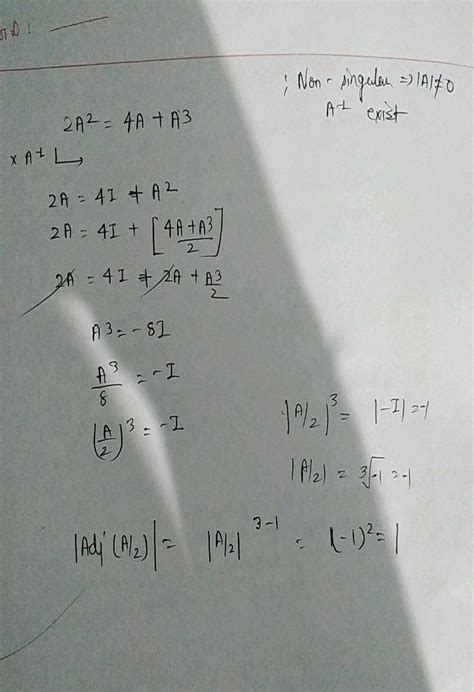 ; Non - singular => |A| ≠ 0
A-1 exist
2A² = 4A + A3
x A-1
2A = 4I + A²
2A = 4I + [4A+A3/2]
2A = 4I + 2A + A3/2
A3 = -8I
A3/8 = -I
(A/2)3 = -I
|A/2|3 = |-I| = -1
|A/2| = 3√-1 = -1
|Adj (A/2)| = |A/2| 3-1 = (-1)² = 1